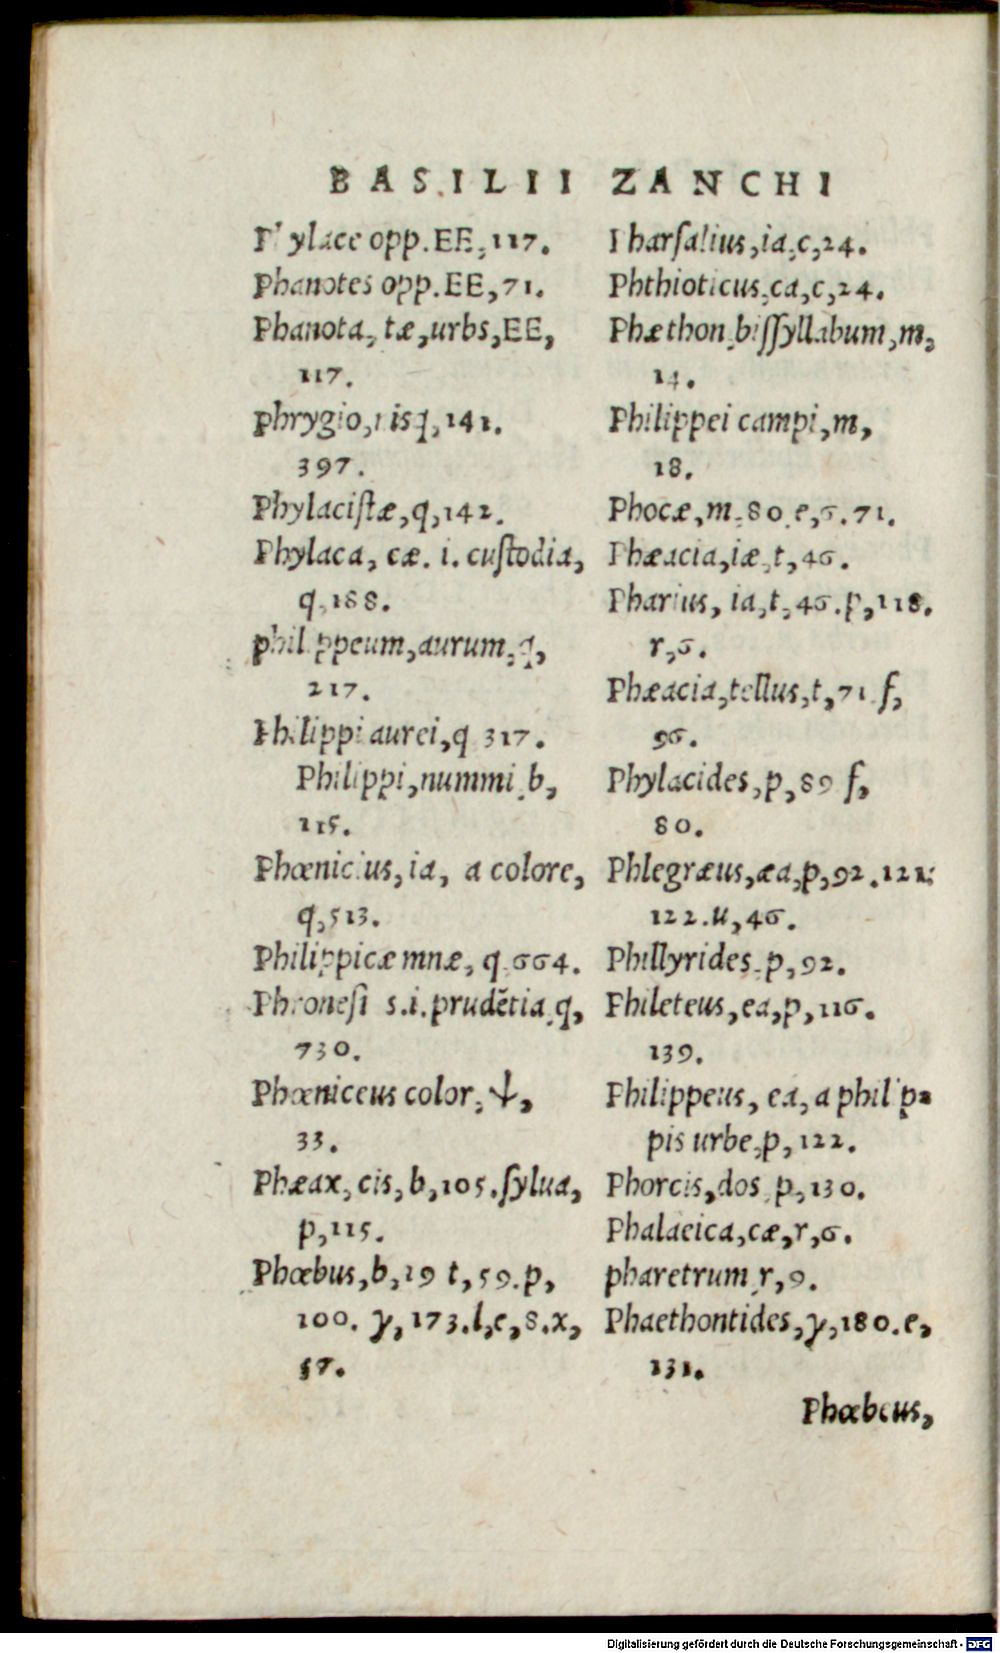 BASILII ZANCHI
Phylace opp. EE, 117.
Phanotes opp. EE, 71.
Phanota, tæ, urbs, EE,
117.
phrygio, nis q, 141.
397.
Phylacistæ, q, 142.
Phylaca, cæ. i. custodia,
q, 188.
philippeum, aurum, q,
217.
Philippi aurei, q 317.
Philippi, nummi, b,
115.
Phœnicius, ia, a colore,
q, 513.
Philippicæ mnæ, q. 664.
Phronesi s.i. prudẽtia q,
730.
Phœniceus color, ψ,
33.
Phæax, cis, b, 105. sylua,
p, 115.
Phœbus, b, 19 t, 59. p,
100. γ, 173. l, c, 8. x,
57.
Pharsalius, ia, c, 24.
Phthioticus, ca, c, 24.
Phæthon bissyllabum, m,
14.
Philippei campi, m,
18.
Phocæ, m. 80 e, 6. 71.
Phæacia, iæ, t, 46.
Pharius, ia, t, 46. p, 118.
r, 6.
Phæacia, tellus, t, 71 f,
96.
Phylacides, p, 89 f,
80.
Phlegræus, æa, p, 92. 121.
122. u, 46.
Phillyrides, p, 92.
Phileteus, ea, p, 116.
139.
Philippeus, ea, a philip=
pis urbe, p, 122.
Phorcis, dos p, 130.
Phalaeica, cæ, r, 6.
pharetrum r, 9.
Phaethontides, γ, 180. e,
131.
Phœbeus,
Digitalisierung gefördert durch die Deutsche Forschungsgemeinschaft - DFG